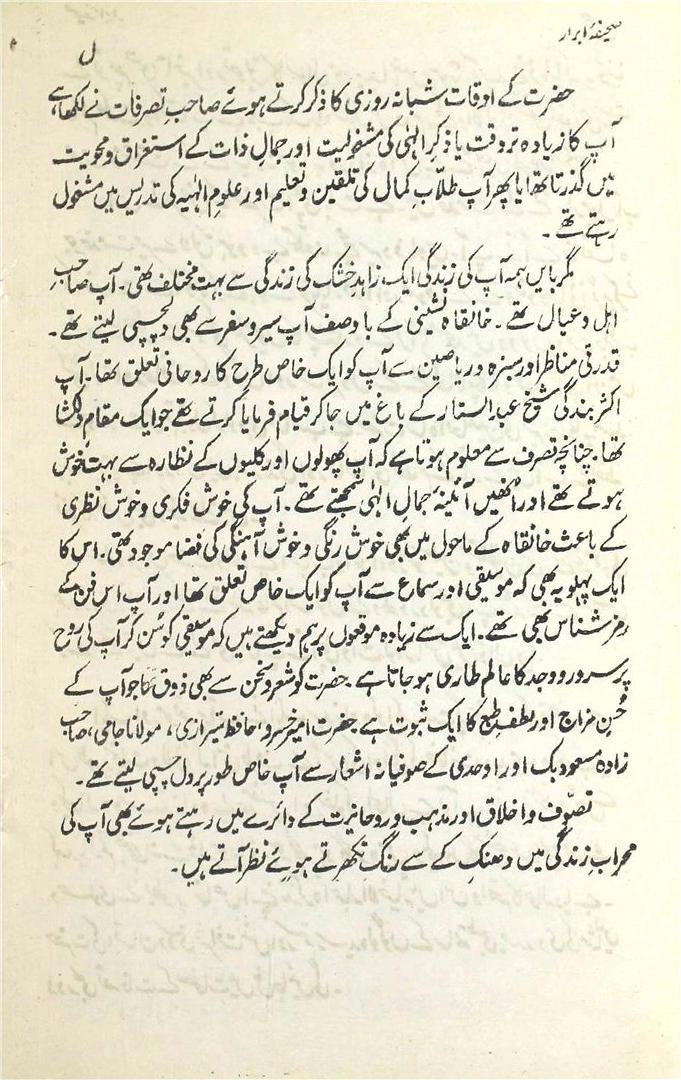 صحیفۂ ابرار
ل
حضرت کے اوقات شبانہ روزی کا ذکر کرتے ہوئے صاحبِ تصرفات نے لکھا ہے
آپ کا زیادہ تر وقت یا ذکرِ الٰہی کی مشغولیت اور جمالِ ذات کے استغراق و محویت
میں گذرتا تھا یا پھر آپ طلّابِ کمال کی تلقین و تعلیم اور علومِ الٰہیہ کی تدریس میں مشغول
رہتے تھے ۔
مگر بایں ہمہ آپ کی زندگی ایک زاہدِ خشک کی زندگی سے بہت مختلف تھی ۔ آپ صاحبِ
اہل و عیال تھے ۔ خانقاہ نشینی کے باوصف آپ سیر و سفر سے بھی دلچسپی لیتے تھے ۔
قدرتی مناظر اور سبزہ و ریاحین سے آپ کو ایک خاص طرح کا روحانی تعلق تھا ۔ آپ
اکثر بندگی شیخ عبدالستار کے باغ میں جا کر قیام فرمایا کرتے تھے جو ایک مقامِ دلکشا
تھا ۔ چنانچہ تصرف سے معلوم ہوتا ہے کہ آپ پھولوں اور کلیوں کے نظارہ سے بہت خوش
ہوتے تھے اور اُنھیں آئینۂ جمالِ الٰہی سمجھتے تھے ۔ آپ کی خوش فکری و خوش نظری
کے باعث خانقاہ کے ماحول میں بھی خوش رنگی و خوش آہنگی کی فضا موجود تھی ۔ اس کا
ایک پہلو یہ بھی کہ موسیقی اور سماع سے آپ کو ایک خاص تعلق تھا اور آپ اس فن کے
رمز شناس بھی تھے ۔ ایک سے زیادہ موقعوں پر ہم دیکھتے ہیں کہ موسیقی کو سُن کر آپ کی روح
پر سرور و وجد کا عالم طاری ہو جاتا ہے ۔ حضرت کو شعر و سخن سے بھی ذوق تھا جو آپ کے
حُسنِ مزاج اور لطفِ طبع کا ایک ثبوت ہے ۔ حضرت امیر خسرو، حافظ شیرازی ، مولانا جامی ، صاحب
زادہ مسعود بک اور اوحدی کے صوفیانہ اشعار سے آپ خاص طور پر دل چسپی لیتے تھے ۔
تصوّف و اخلاق اور مذہب و روحانیت کے دائرے میں رہتے ہوئے بھی آپ کی
محرابِ زندگی میں دھنک کے سے رنگ نکھرتے ہوئے نظر آتے ہیں ۔